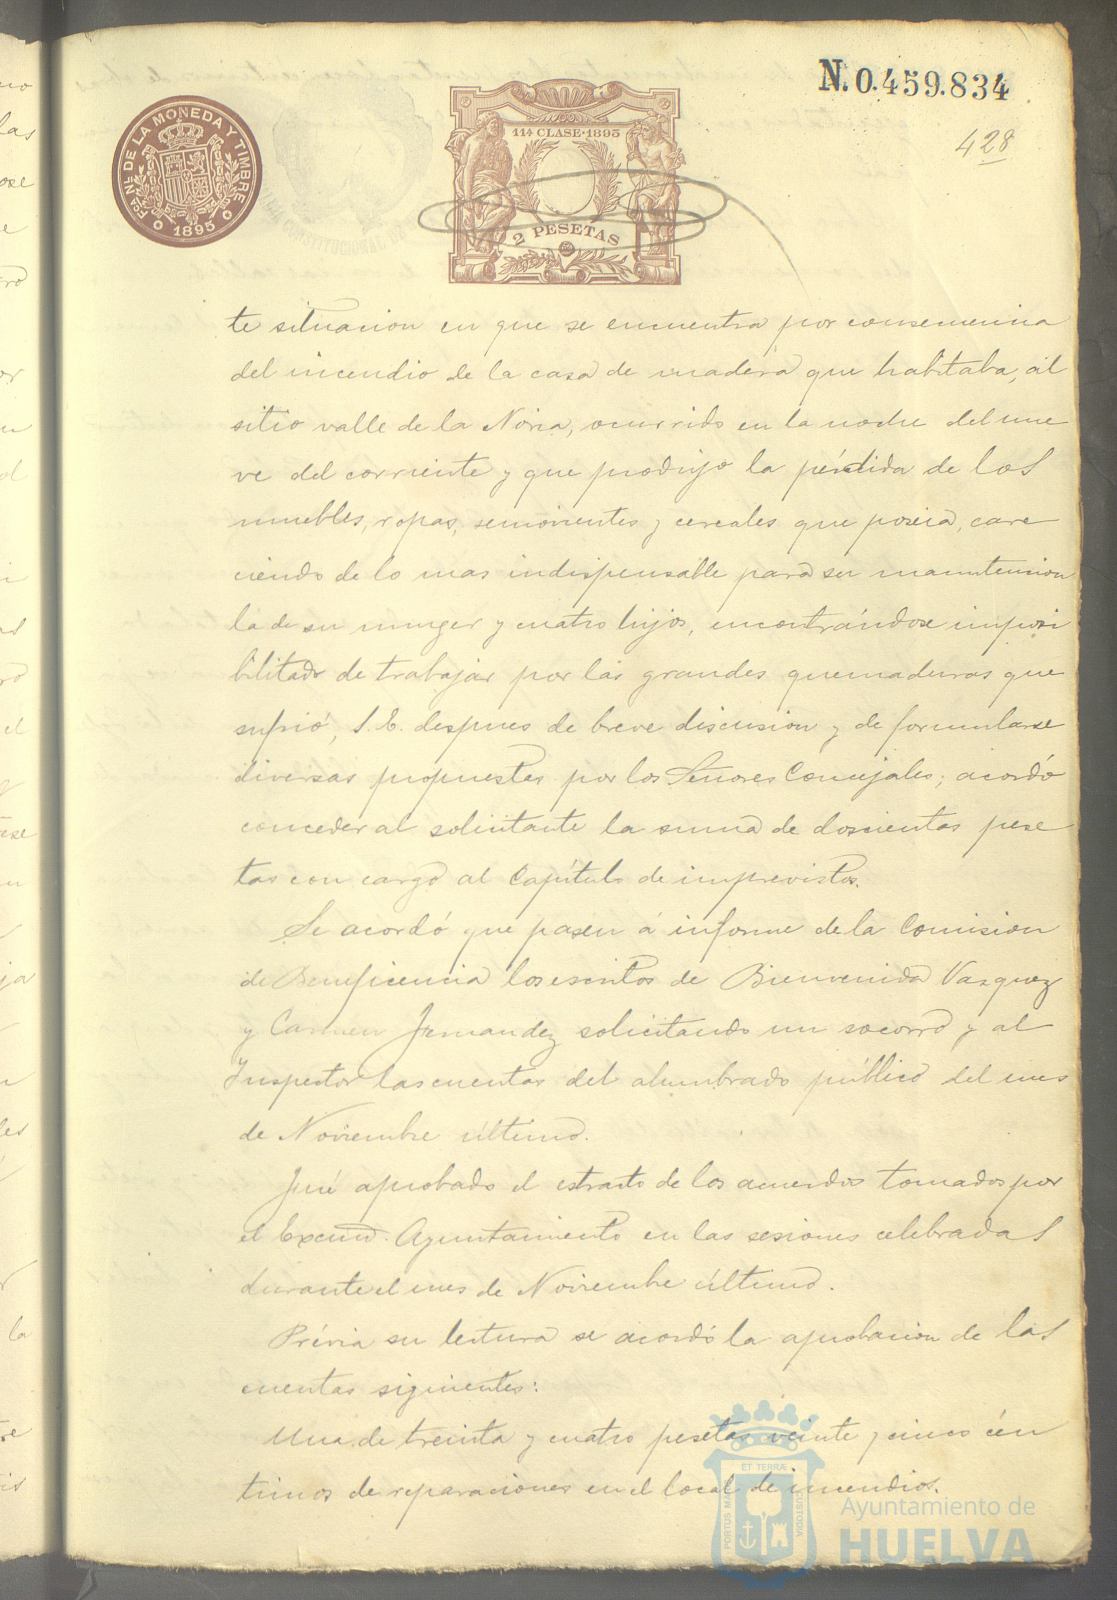 N. 0.459.834
Fca. Nl. DE LA MONEDA Y TIMBRE
1895
11ª CLASE·1895
2 PESETAS
CONSTITUCIONAL
428
te situacion en que se encuentra por consecuencia
del incendio de la casa de madera que habitaba, al
sitio valle de la Noria, ocurrido en la noche del nue
ve del corriente y que produjo la pérdida de los
muebles, ropas, semovientes y cereales que poseia, care
ciendo de lo mas indispensable para su manutension
la de su muger y cuatro hijos, encontrándose imposi
bilitado de trabajar por las grandes quemaduras que
sufrió, S. E. despues de breve discusion y de formularse
diversas propuestas por los Señores Concejales, acordó
conceder al solicitante la suma de doscientas pese
tas con cargo al Capítulo de imprevistos.
Se acordó que pasen á informe de la Comision
de Beneficencia los escritos de Bienvenida Vazquez
y Carmen Fernandez solicitando un socorro y al
Inspector las cuentas del alumbrado público del mes
de Noviembre último.
Fué aprobado el estracto de los acuerdos tomados por
el Excmo. Ayuntamiento en las sesiones celebradas
durante el mes de Noviembre último.
Prévia su lectura se acordó la aprobacion de las
cuentas siguientes:
Una de treinta y cuatro pesetas veinte y cinco cén
timos de reparaciones en el local de incendios.
PORTUS MARIS ET TERRÆ CUSTODIA
Ayuntamiento de
HUELVA